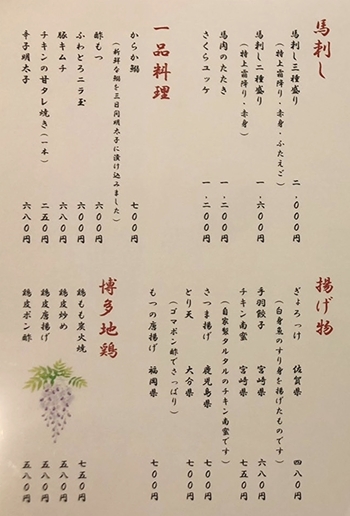 馬刺し
馬刺し三種盛り 二、〇〇〇円
（特上霜降り・赤身・ふたえご）
馬刺し二種盛り 一、六〇〇円
（特上霜降り・赤身）
馬肉のたたき 一、二〇〇円
さくらユッケ 一、二〇〇円
一品料理
からか鰯 七〇〇円
（新鮮な鰯を三日間明太子に漬け込みました）
酢もつ 六〇〇円
ふわとろニラ玉 六〇〇円
豚キムチ 六八〇円
チキンの甘タレ焼き（一本） 二五〇円
辛子明太子 六八〇円
揚げ物
ぎょろっけ 佐賀県 四八〇円
（白身魚のすり身を揚げたものです）
手羽餃子 宮崎県 六八〇円
チキン南蛮 宮崎県 七五〇円
（自家製タルタルのチキン南蛮です）
さつま揚げ 鹿児島県 七〇〇円
とり天 大分県 七〇〇円
（ゴマポン酢でさっぱり）
もつの唐揚げ 福岡県 七〇〇円
博多地鶏
鶏もも炭火焼 七五〇円
鶏皮炒め 五八〇円
鶏皮唐揚げ 五八〇円
鶏皮ポン酢 五八〇円